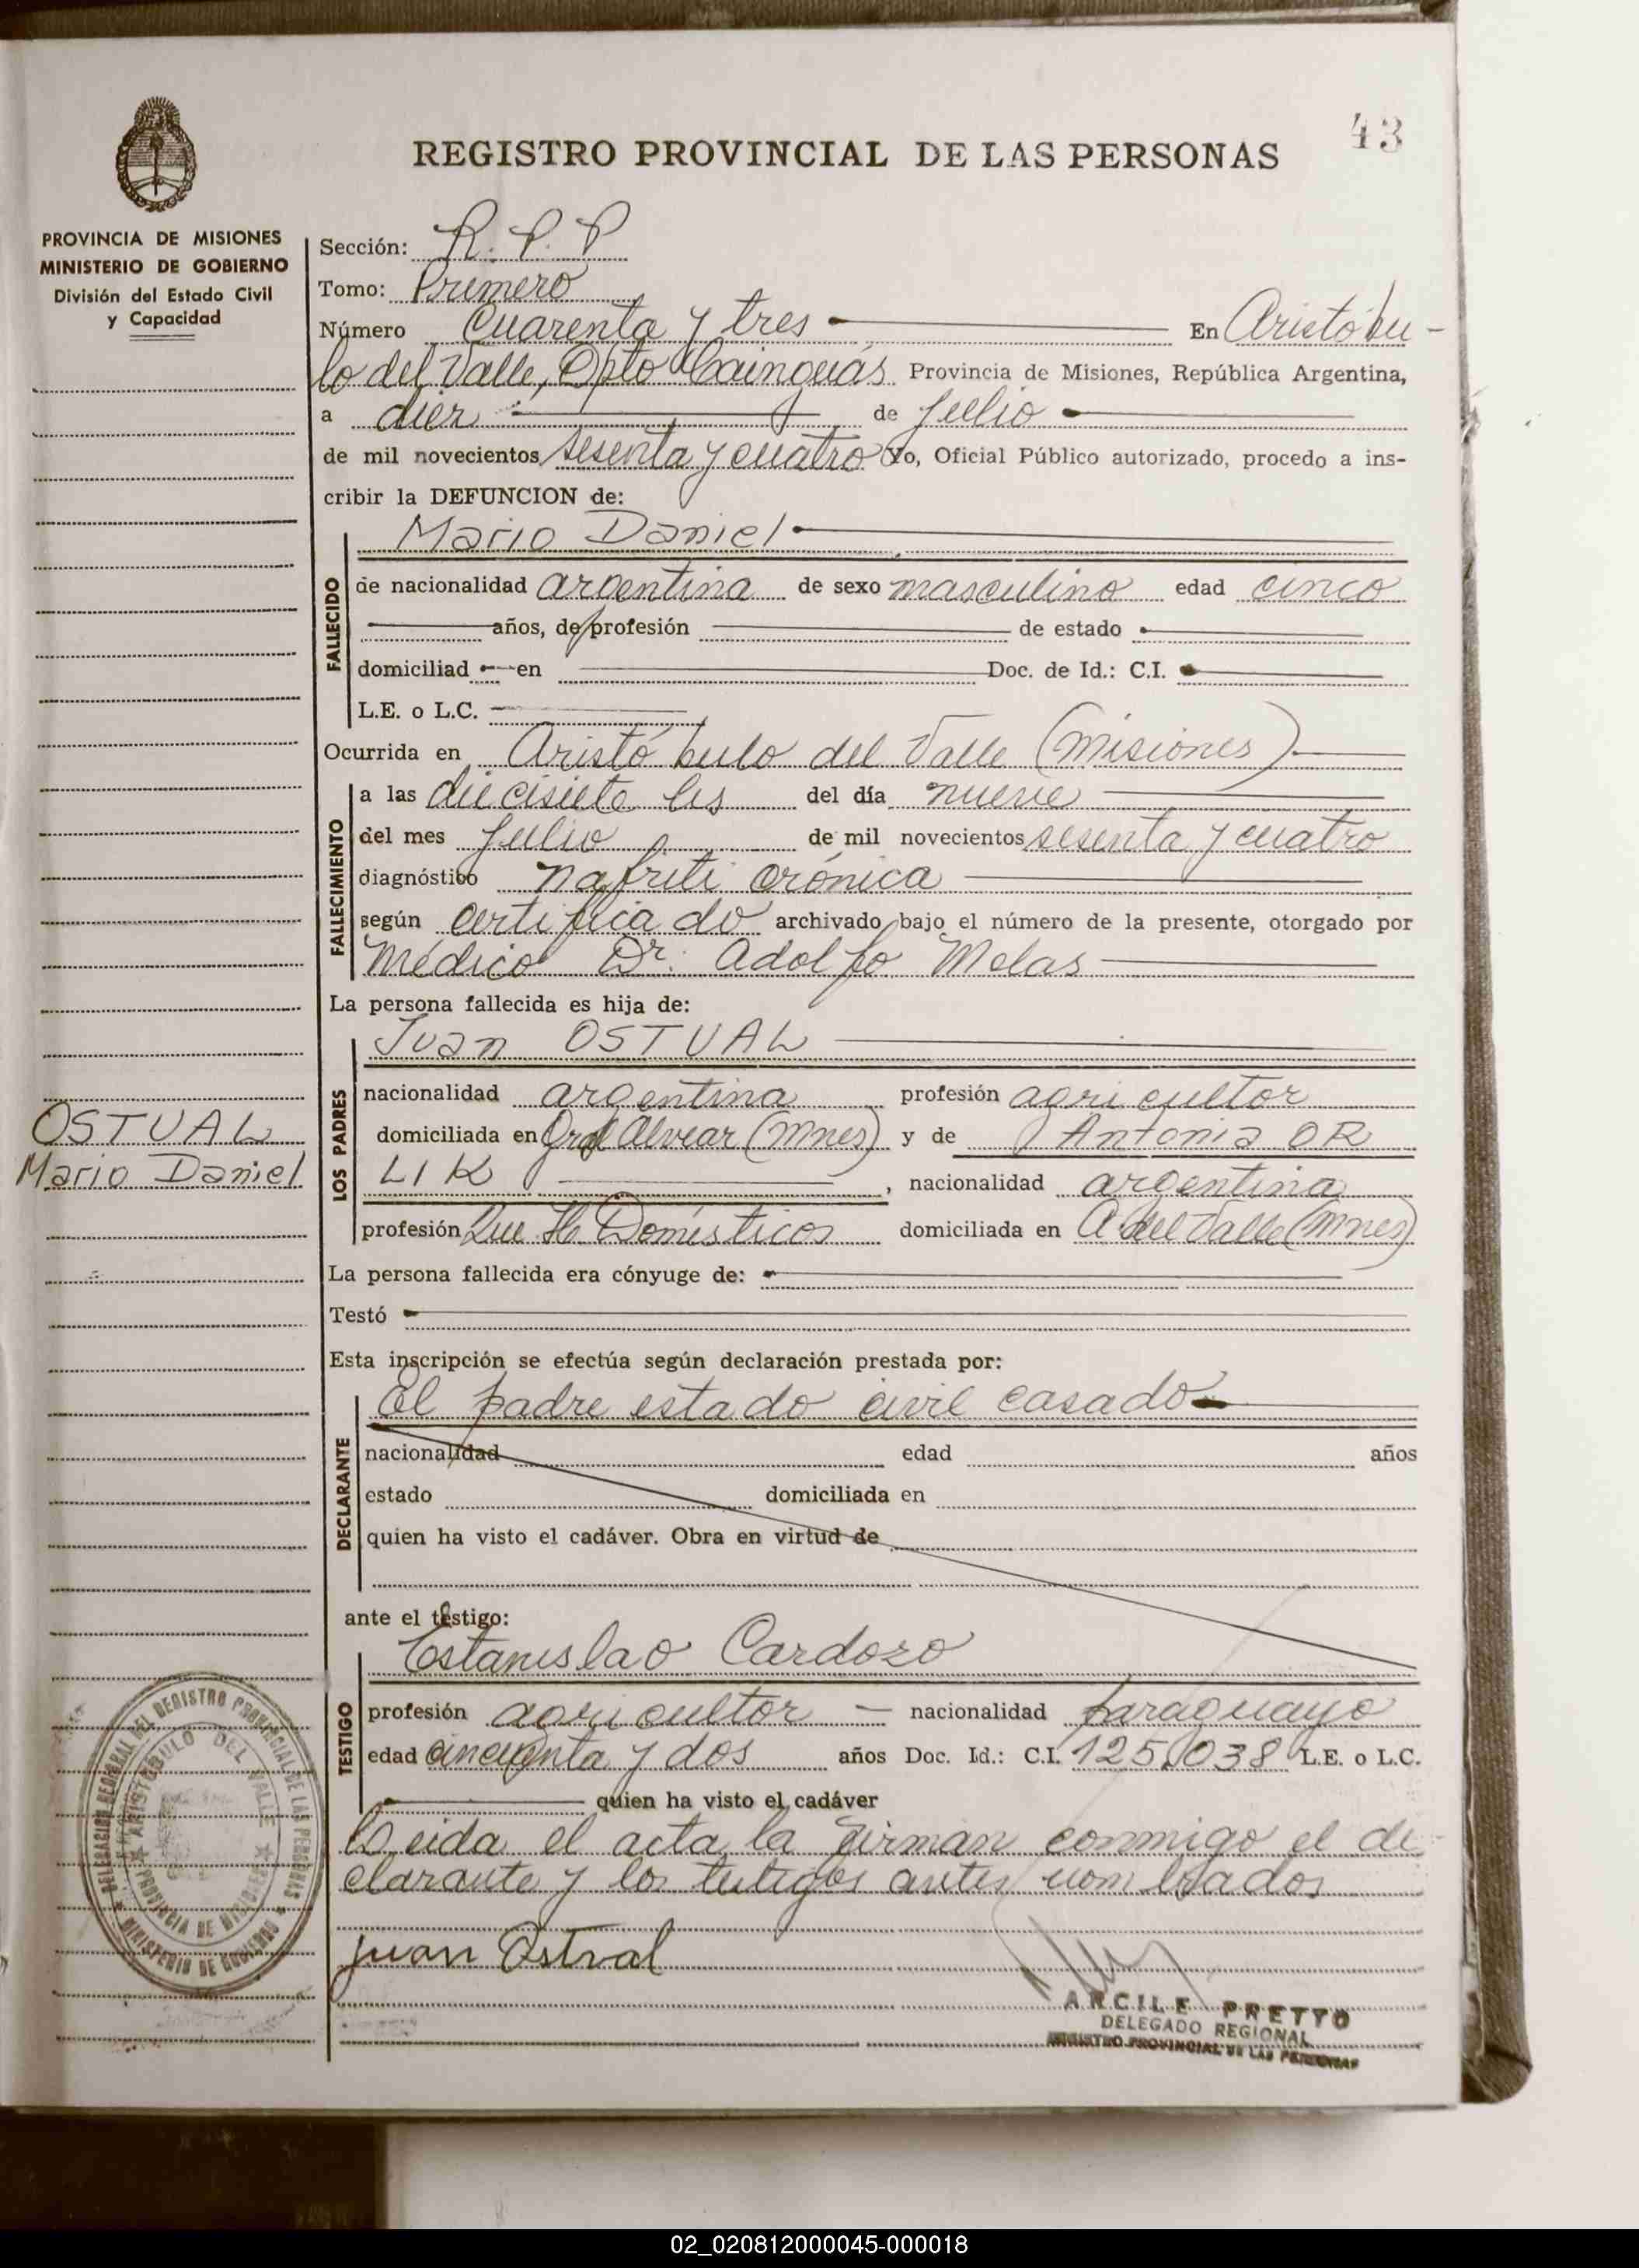 43
REGISTRO PROVINCIAL DE LAS PERSONAS
PROVINCIA DE MISIONES
MINISTERIO DE GOBIERNO
División del Estado Civil
y Capacidad
Sección: R. P. P
Tomo: Primero
Número Cuarenta y tres En Aristóbu-
lo del Valle, Dpto Cainguás Provincia de Misiones, República Argentina,
a diez de julio
de mil novecientos sesenta y cuatro Yo, Oficial Público autorizado, procedo a ins-
cribir la DEFUNCION de:
Mario Daniel
FALLECIDO
de nacionalidad argentina de sexo masculino edad cinco
años, de profesión de estado
domiciliad en Doc. de Id.: C.I.
L.E. o L.C.
Ocurrida en Aristóbulo del Valle (Misiones)
FALLECIMIENTO
a las diecisiete hs del día nueve
del mes julio de mil novecientos sesenta y cuatro
diagnóstico nafriti crónica
según certificado archivado bajo el número de la presente, otorgado por
Médico Dr. Adolfo Melas
La persona fallecida es hija de:
LOS PADRES
Juan OSTUAL
nacionalidad argentina profesión agricultor
domiciliada en Gral Alvear (Mnes) y de Antonia OR
LIK, nacionalidad argentina
profesión Que H. Domésticos domiciliada en A. del Valle (Mnes)
OSTUAL
Mario Daniel
La persona fallecida era cónyuge de:
Testó
Esta inscripción se efectúa según declaración prestada por:
DECLARANTE
El padre estado civil casado
nacionalidad edad años
estado domiciliada en
quien ha visto el cadáver. Obra en virtud de
ante el testigo:
TESTIGO
Estanislao Cardozo
profesión agricultor nacionalidad paraguayo
edad cincuenta y dos años Doc. Id.: C.I. 125.038 L.E. o L.C.
quien ha visto el cadáver
Leida el acta la firman conmigo el de-
clarante y los testigos antes nombrados
juan Ostval
DELEGACION REGIONAL DEL REGISTRO PROVINCIAL DE LAS PERSONAS
MINISTERIO DE GOBIERNO
ARISTOBULO DEL VALLE
PROVINCIA DE MISIONES
ARCILE PRETTO
DELEGADO REGIONAL
REGISTRO PROVINCIAL DE LAS PERSONAS
02_020812000045-000018